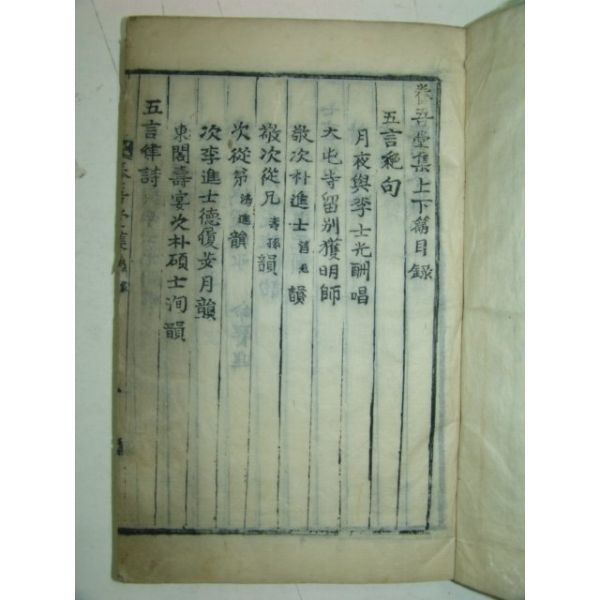 養吾堂集上下篇目錄
五言絶句
月夜與李士允酬唱
大屯寺留別獲明師
敬次朴進士 韻
敬次從兄 壽孫 韻
次從弟 韻
次李進士德履 月韻
東閣壽宴次朴碩士洵韻
五言律詩